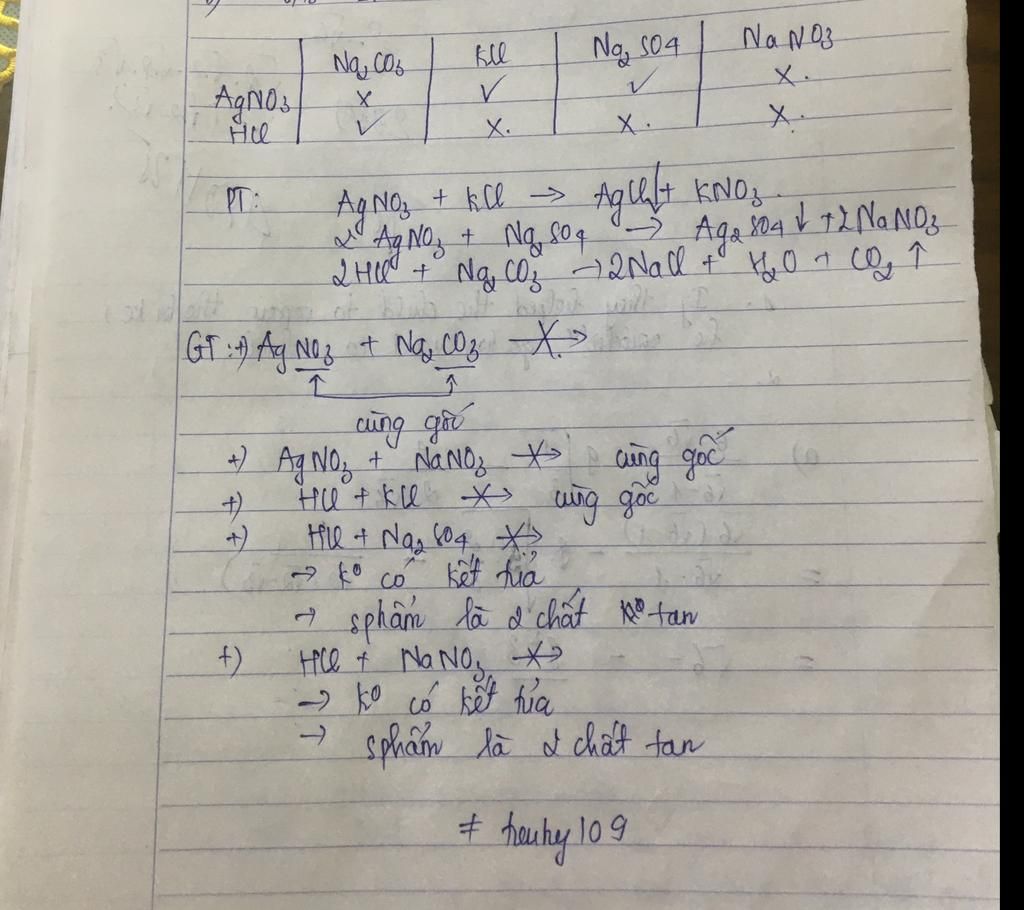 Na2CO3 | KCl | Na2SO4 | NaNO3
AgNO3 | x | ✓ | ✓ | x.
HCl | ✓ | x. | x. | x.
PT: AgNO3 + KCl → AgCl↓ + KNO3
2 AgNO3 + Na2SO4 → Ag2SO4 ↓ + 2NaNO3
2HCl + Na2CO3 → 2NaCl + H2O + CO2 ↑
GT: +) AgNO3 + Na2CO3 -X->
cùng gốc
+) AgNO3 + NaNO3 -X-> cùng gốc
+) HCl + KCl -X-> cùng gốc
+) HCl + Na2SO4 -X->
→ k0 có kết tủa
→ sphẩm là 2 chất tan
+) HCl + NaNO3 -X->
→ k0 có kết tủa
→ sphẩm là 2 chất tan